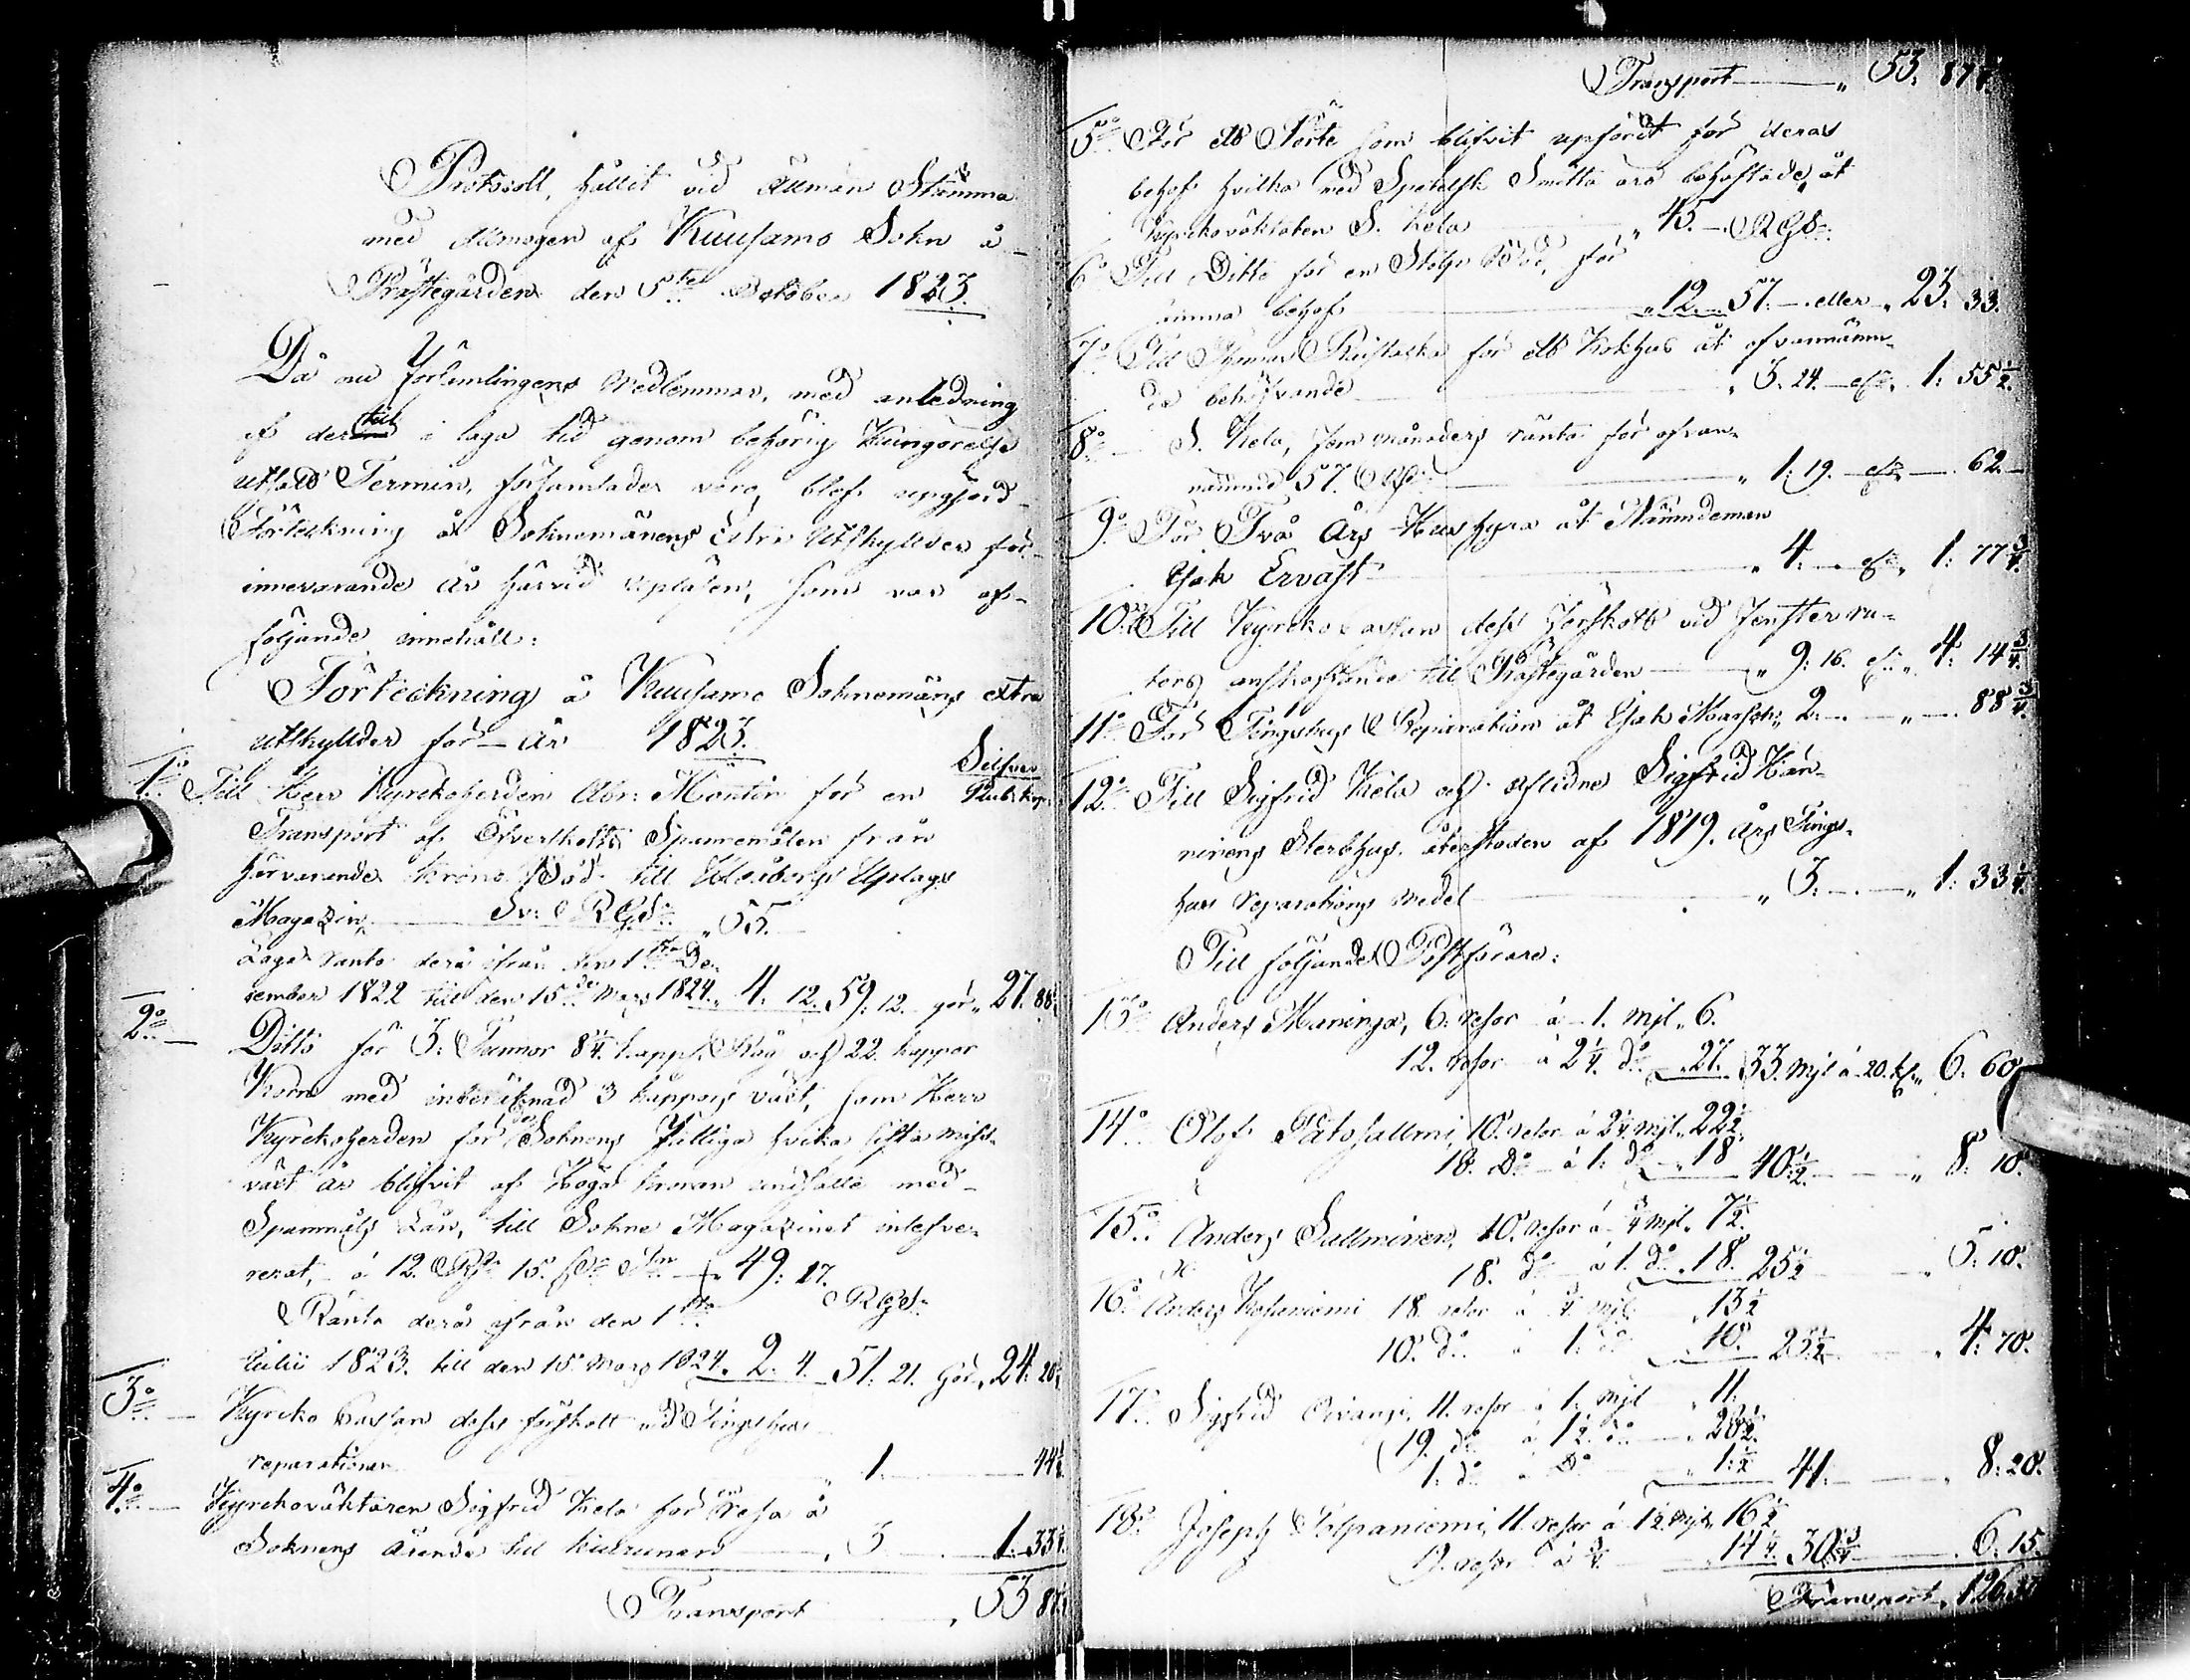 Protocoll, hållit vid Allmän Stämma
med Allmogen af Kuusamo Sokn å
Prästegården den 5te October 1823.
Då nu Församlingens Medlemmar, med anledning
af dertill i laga tid genom behörig Kungörelse
utsatt Termin, församlade voro, blef upgjord
Förteckning å Soknemännens Extra Utskylder för
innevarande år härvid upläsen, som var af
följande innehåll:
Förteckning å Kuusamo Soknemäns extra
utskylder för År 1823.
Silfver
1o Till Herr Kyrckoherden Abr: Montin för en Rub. Kop.
Transport af Öfverskotts Spanemålen från
härvarande Krono Bod till Uleåborgs Uplags
Magazin Sv: RGs 55.
Laga Ränta derå ifrån den 1sta De-
cember 1822 till den 15de Mars 1824. 4. 12. 59: 12. gör 27. 88
2o Ditto för 3. Tunnor 8 1/4 kapp. Råg och 22. kappor
Korn med inberäknad 3 kappors växt, som Herr
Kyrckoherden för Soknens fattiga hvilka sista miss-
växt år blifvit af Höga Kronan undsatte med
Spanmåls Lån, till Sokne Magazinet inlefve-
rerat, á 12. Rd 15. s Tn 49: 17.
Ränta derå ifrån den 1sta RGs
Julii 1823. till den 15. Mars 1824. 2. 4. 51. 21. Gör 24. 20
3o Kyrcko Cassan dess förskott vid Tingshus
reparationen 1. 44 1/2
4o Kyrckoväktaren Sigfrid Kela för en resa å
Soknens ärende till 3 1. 33 1/4
Transport 53 87
Transport 53. 87
5o För ett Pörte som blifvit upfördt för deras
behof hvilka med Spetelsk Smitta äro behäftade, åt
Kyrckoväktaren S. Kela 45. RGs.
6o Till Ditto för en Stolp Bod, för
samma behof 12. 57. eller 25. 33.
7o Till Thomas för ett Kokhus åt ofvannämn-
de behöfvande 3. 24. 1: 55 1/2
8o S. Kela, fem månaders ränta för ofvan-
nämnd 57. 1: 19. 62.
9o För Två Års Hushyra åt Nämndeman
Esak Ervast 4. 1: 77 3/4
10o Till Kyrcko Cassan dess förskott vid fensterru-
tors anskaffande till Prästegården 9: 16. 4: 14 3/4
11o För Tingshus Reparation åt Esak 2. 88 3/4
12o Till Sigfrid Kela och aflidne Sigfrid Hän-
ninens Sterbhus återstoden af 1819. års Tings-
hus reparations medel 3. 1: 33 1/4
Till följande Postförare:
13o Anders Maninga, 6. resor á 1. Mjl 6.
12. resor á 2 1/4 do 27. 33. Mjl á 20. k 6. 60
14o Olof Patosallmi, 10. resor á 2 1/4 Mjl 22 1/2
18. do á 1. do 18 40 1/2 8: 10.
15o Anders Sallminen, 10. resor á 3/4 Mjl 7 1/2
18. do á 1. do 18. 25 1/2 5: 10.
16o Anders 18 resor á 3/4 Mjl 13 1/2
10. do á 1. do 10. 23 1/2 4: 70.
17o Sigfrid 11. resor á 1. Mjl 11.
19. do á 1 1/2 do 28 1/2
1. do á Do 1: 1/2 41. 8: 20.
18o Joseph Tolpaniemi, 11. resor á 1 1/2 Mjl 16 1/2
19. resor á 3/4 14 1/4 30 3/4 6: 15.
Transport 126.